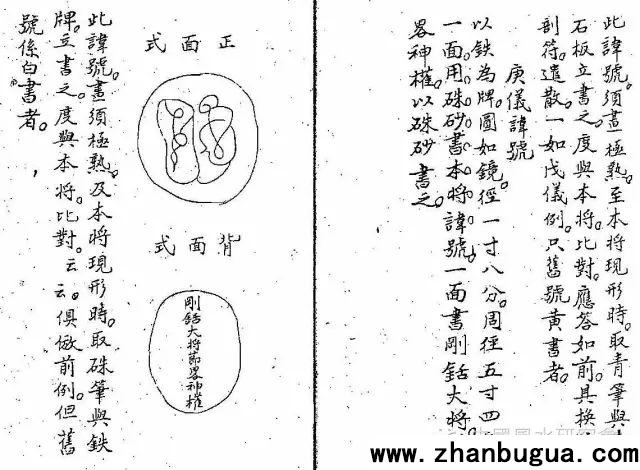 此諱號須畫極熟。至本將現形時。取青筆與
石板立書之。度與本將。比對。應答如前。具換
剖符。遣散一如戊儀例。只舊號黃書者。
庚儀諱號
以鉄為牌。圓如鏡。徑一寸八分。周徑五寸四
一面用硃砂書本將諱號。一面書剛銛大將。
畧神權。以硃砂書之。
正面式
背面式
剛銛大將節畧神權
此諱號。畫須極熟。及本將現形時。取硃筆與鉄
牌。立書之。度與本將。比對。云云。俱倣前例。但舊
號係白書者。
www.zhanbugua.com